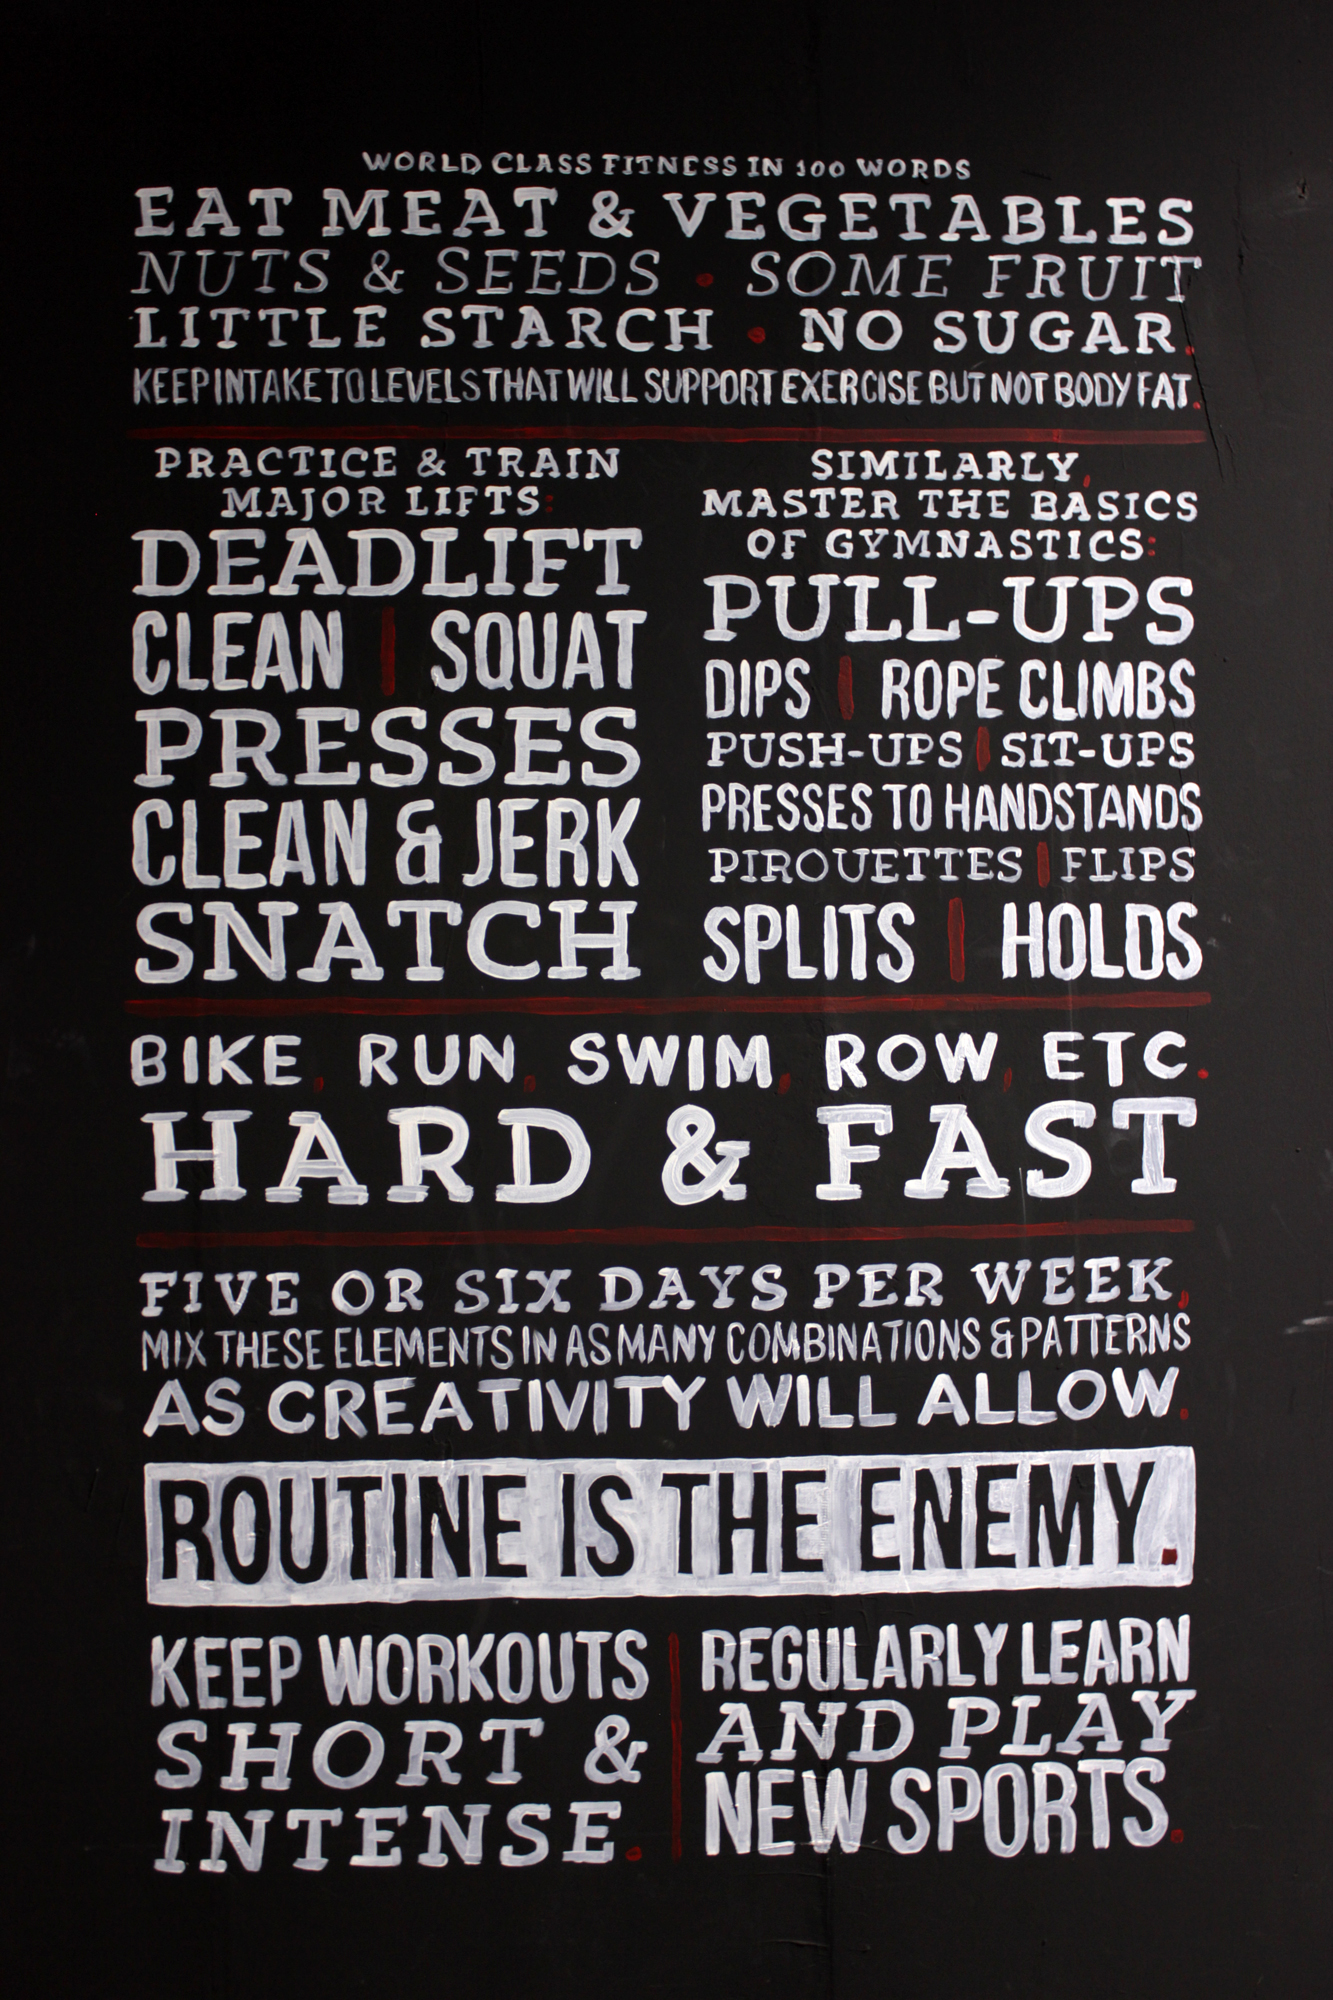 WORLD CLASS FITNESS IN 100 WORDS
EAT MEAT & VEGETABLES
NUTS & SEEDS • SOME FRUIT
LITTLE STARCH • NO SUGAR.
KEEP INTAKE TO LEVELS THAT WILL SUPPORT EXERCISE BUT NOT BODY FAT.
PRACTICE & TRAIN
MAJOR LIFTS:
DEADLIFT
CLEAN | SQUAT
PRESSES
CLEAN & JERK
SNATCH
SIMILARLY,
MASTER THE BASICS
OF GYMNASTICS:
PULL-UPS
DIPS | ROPE CLIMBS
PUSH-UPS | SIT-UPS
PRESSES TO HANDSTANDS
PIROUETTES | FLIPS
SPLITS | HOLDS
BIKE, RUN, SWIM, ROW, ETC.
HARD & FAST
FIVE OR SIX DAYS PER WEEK,
MIX THESE ELEMENTS IN AS MANY COMBINATIONS & PATTERNS
AS CREATIVITY WILL ALLOW.
ROUTINE IS THE ENEMY.
KEEP WORKOUTS
SHORT &
INTENSE.
REGULARLY LEARN
AND PLAY
NEW SPORTS.